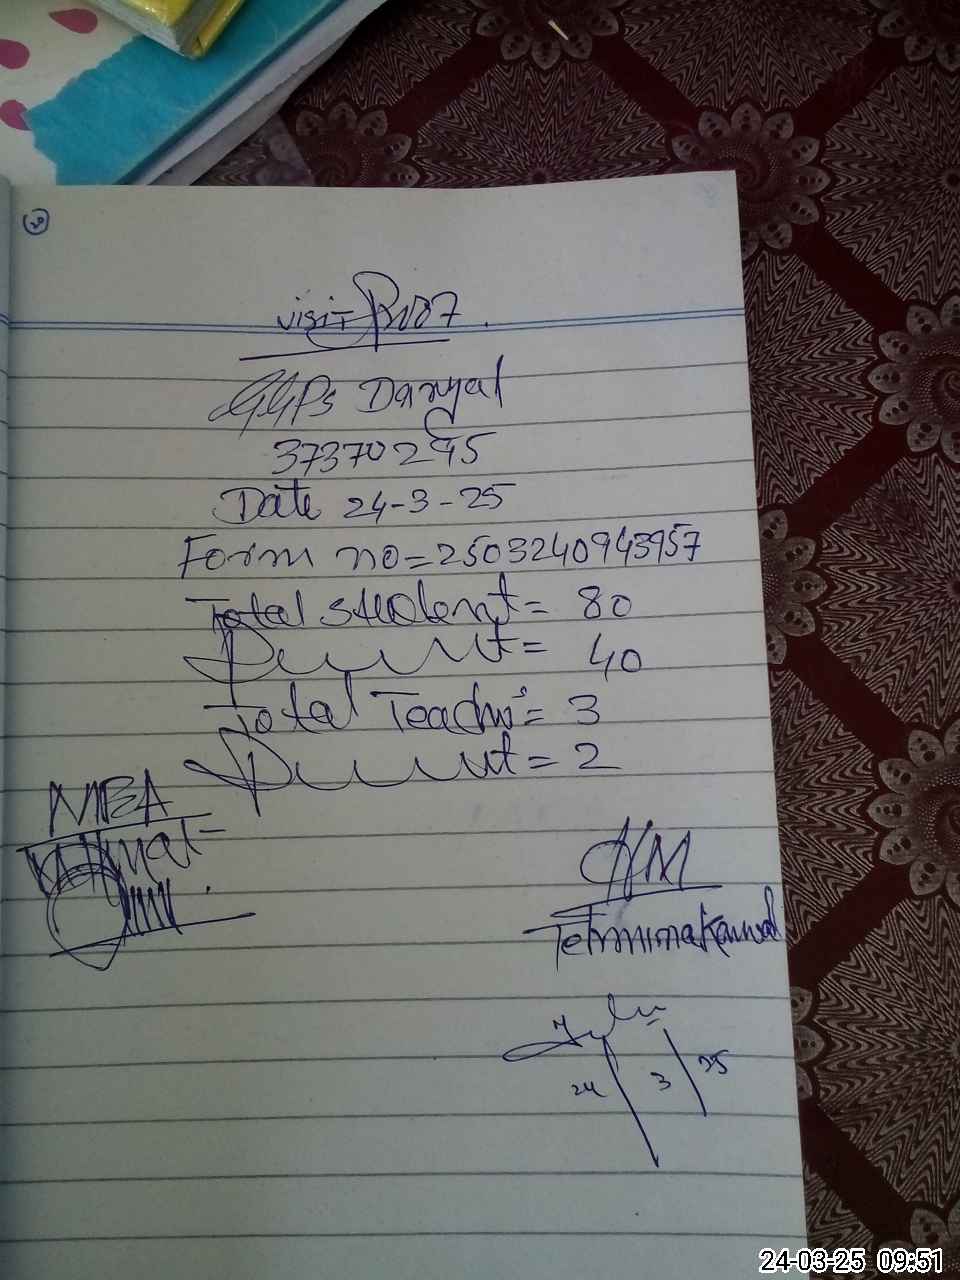 20
visit R1187.
GGPs Danyal
37370295
Date 24-3-25
Form no=2503240943957
Total student= 80
Present= 40
Total Teacher= 3
Present= 2
MEA
HM
Tehmina Kanwal
24 3 25
24-03-25 09:51